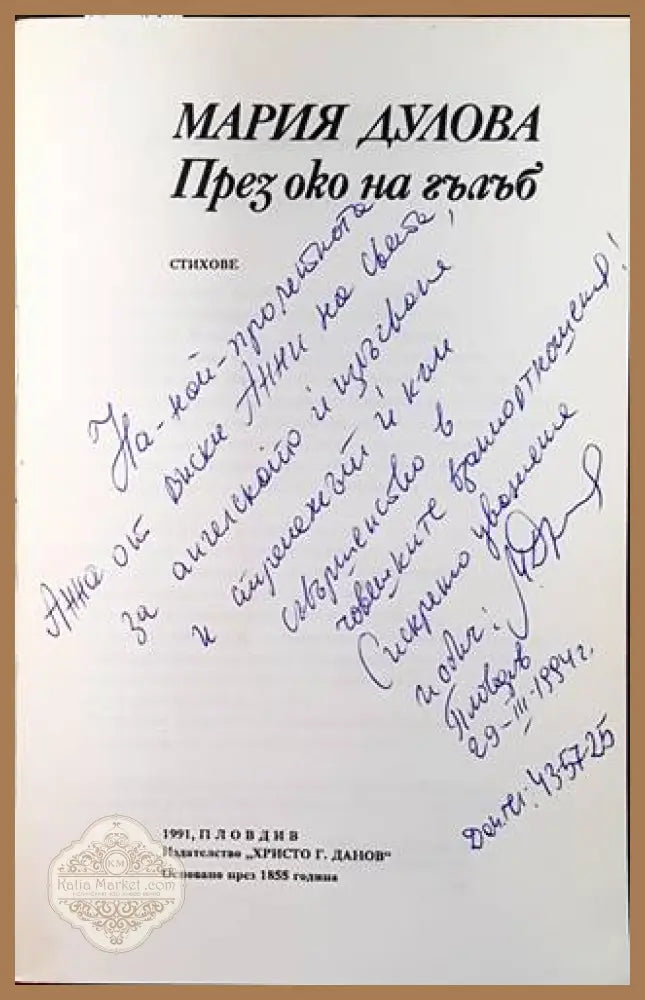 МАРИЯ ДУЛОВА
През око на гълъб
СТИХОВЕ
На-най-пролетната
Анна от всички Анни на света,
за ангелското ѝ излъчване
и стремежът ѝ към
съвършенство в
човешките взаимоотношения!
С искрено уважение
и обич:
Пловдив
29-III-1994 г.
Дом. тел: 435725
1991, ПЛОВДИВ
Издателство „ХРИСТО Г. ДАНОВ"
Основано през 1855 година
KM
Katia Market .com